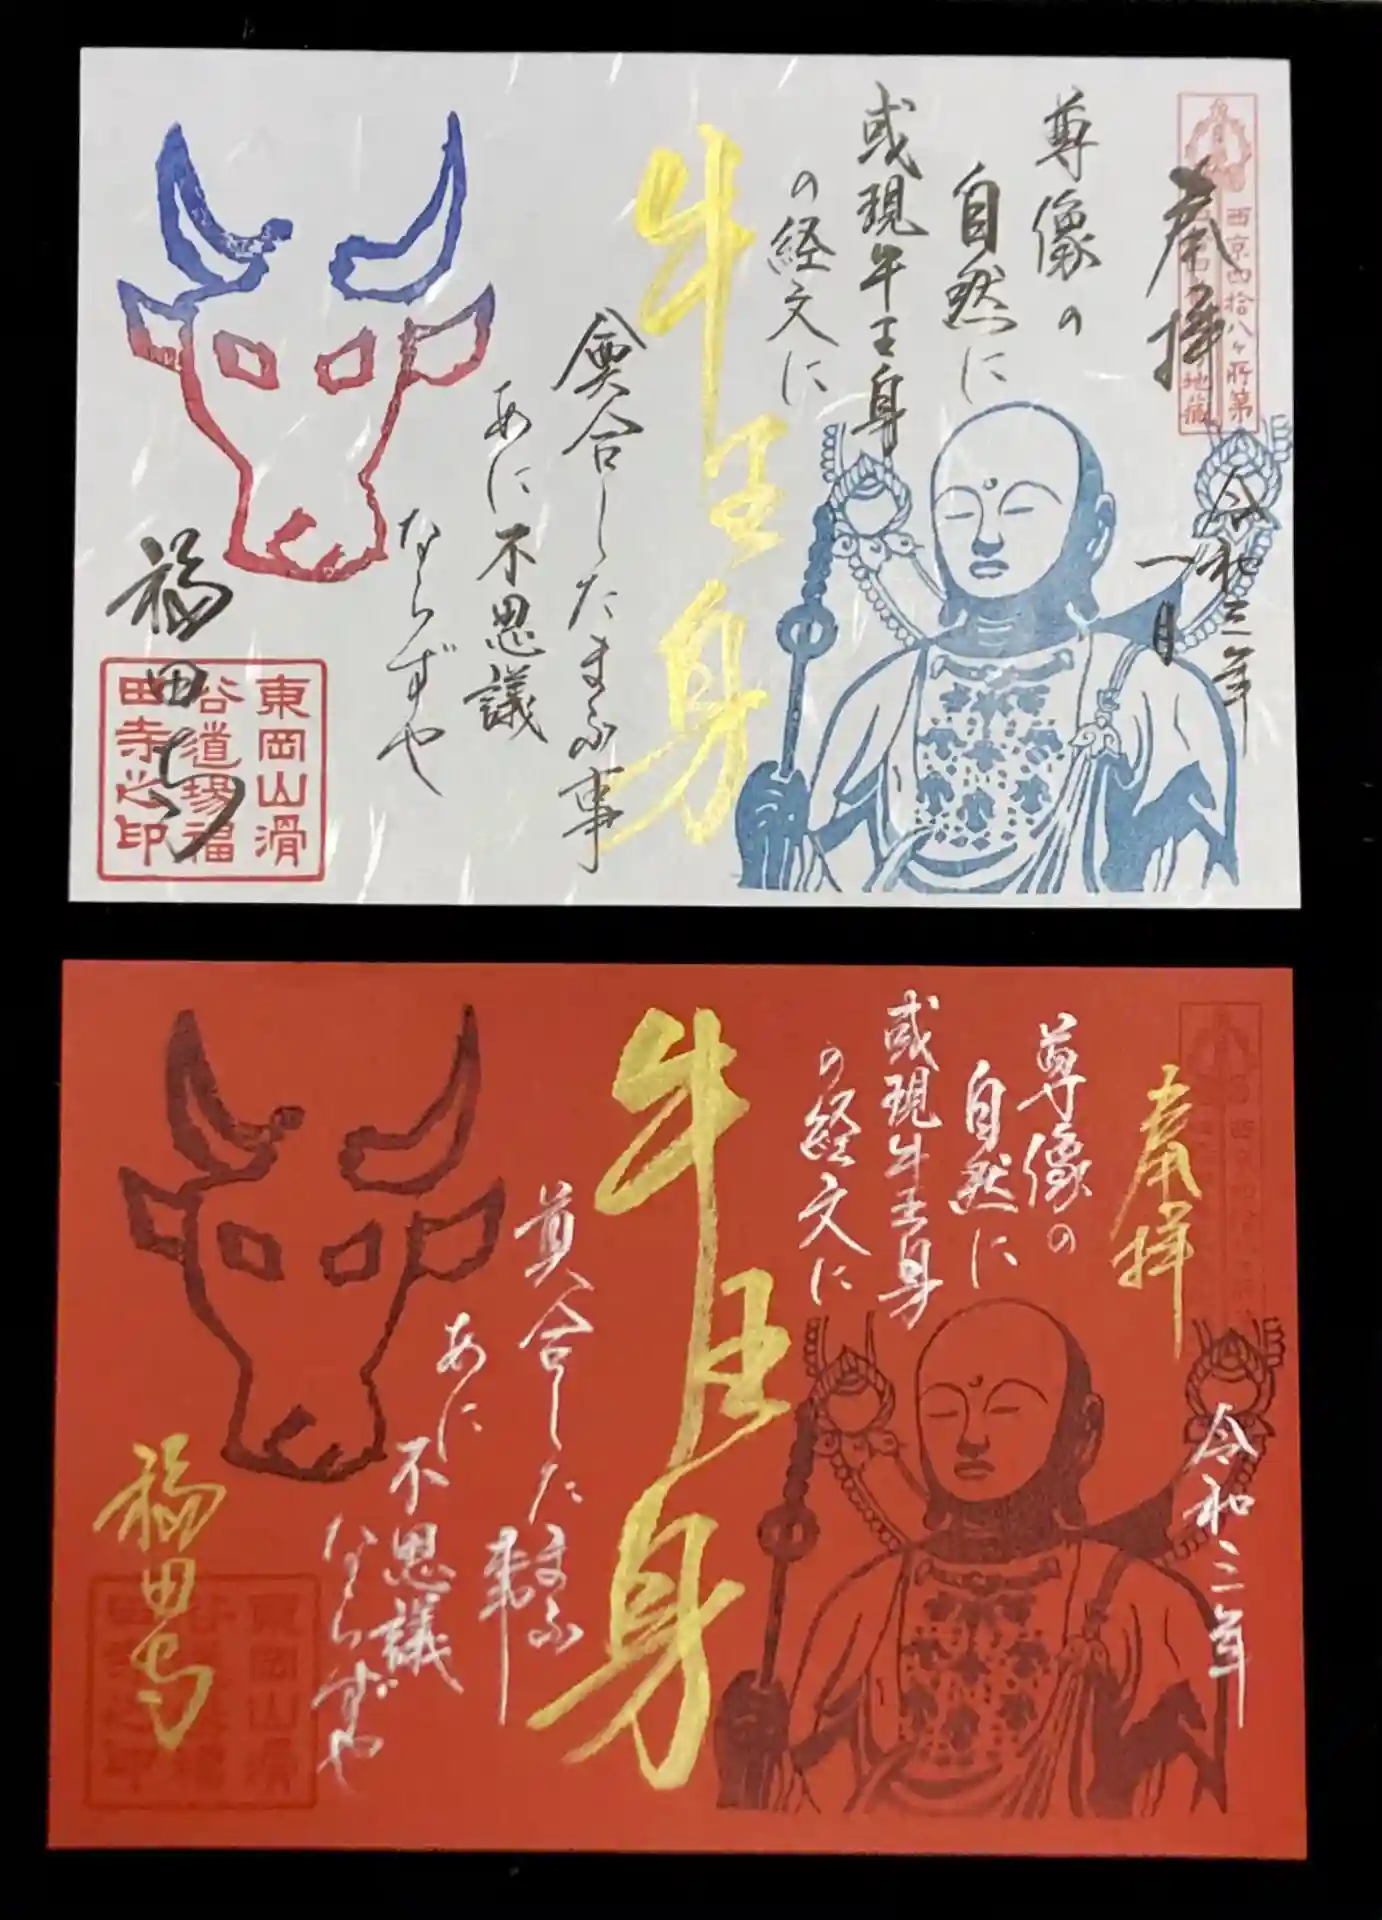 奉拝
西京四拾八ヶ所第
地蔵
令和三年
一月
尊像の
自然に
或現牛王身
の経文に
牛王身
冥合したまふ事
あに不思議
ならずや
福田寺
東岡山滑
谷道場福
田寺之印
奉拝
令和三年
尊像の
自然に
或現牛王身
の経文に
牛王身
冥合したまふ
事
あに
不思議
ならずや
福田寺
東岡山滑
田寺之印